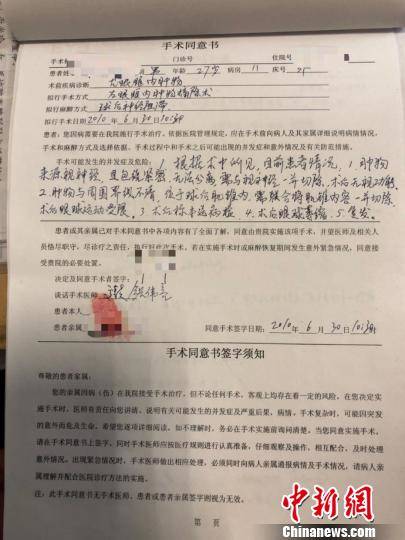 手术同意书
手术 门诊号 住院号
患者姓 男 年龄 27岁 病房 11 床号 25
术前疾病诊断 左眼眶内肿物
拟行手术方式 左眼眶内肿物摘除术
拟行麻醉方式 球后神经阻滞
拟行手术日期 2010年6月30日10:30时
患者:您因病需要在我院施行手术治疗。依据医院管理规定,应在手术前向病人及其家属详细说明病情情况。
手术和麻醉方式及选择依据。手术过程中和手术之后可能出现的并发症和意外情况及有关防范措施。
手术可能发生的并发症及危险: 1.根据术中所见,目前患者情况,1.肿物
来源视神经,且包绕紧密,无法分离,需与视神经一并切除,术后无视功能
2.肿物与周围界线不清,位于球后肌锥内,需联合将肌锥内容一并切除,
术后眼球运动受限。3.术后标本送病检,4.术后眼球萎缩,5.复发。
患者或其亲属已对手术同意书中各项内容有了全面了解,同意由贵院实施该项手术,并望医师及相关人
员恪尽职守,尽诊疗之责任,执行好此次手术。若在实施手术时或麻醉恢复期间发生意外紧急情况,同意接
受贵院的必要处置。
决定及同意手术者签字:
谈话手术医师
患者本人
患者亲属 同意手术签字日期: 2010年6月30日10:30时
手术同意书签字须知
尊敬的患者家属:
您的亲属因病(伤)在我院接受手术治疗,但不论任何手术,客观上均存在着一定的风险,在您决定实
施手术时,医师有责任向您讲清、说明有关可能发生的并发症及严重后果,病情,手术复杂时,可能因突发
的意外而危及生命。希望您逐项详细阅读。如不理解时,务必在手术实施前询问清楚。当您同意实施手术,
请在手术同意书上签字。同时手术医师应按医疗规则进行认真准备,仔细观察及操作,相互配合,及时处理
意外情况。出现紧急情况时,手术医师做出相应处理,必须同时向病人亲属通报病情及手术情况,请病人亲
属理解并配合医院诊疗方法的实施。
注:此手术同意书无手术医师、患者或患者亲属签字则视为无效。
第 页
中新网
Chinanews.com